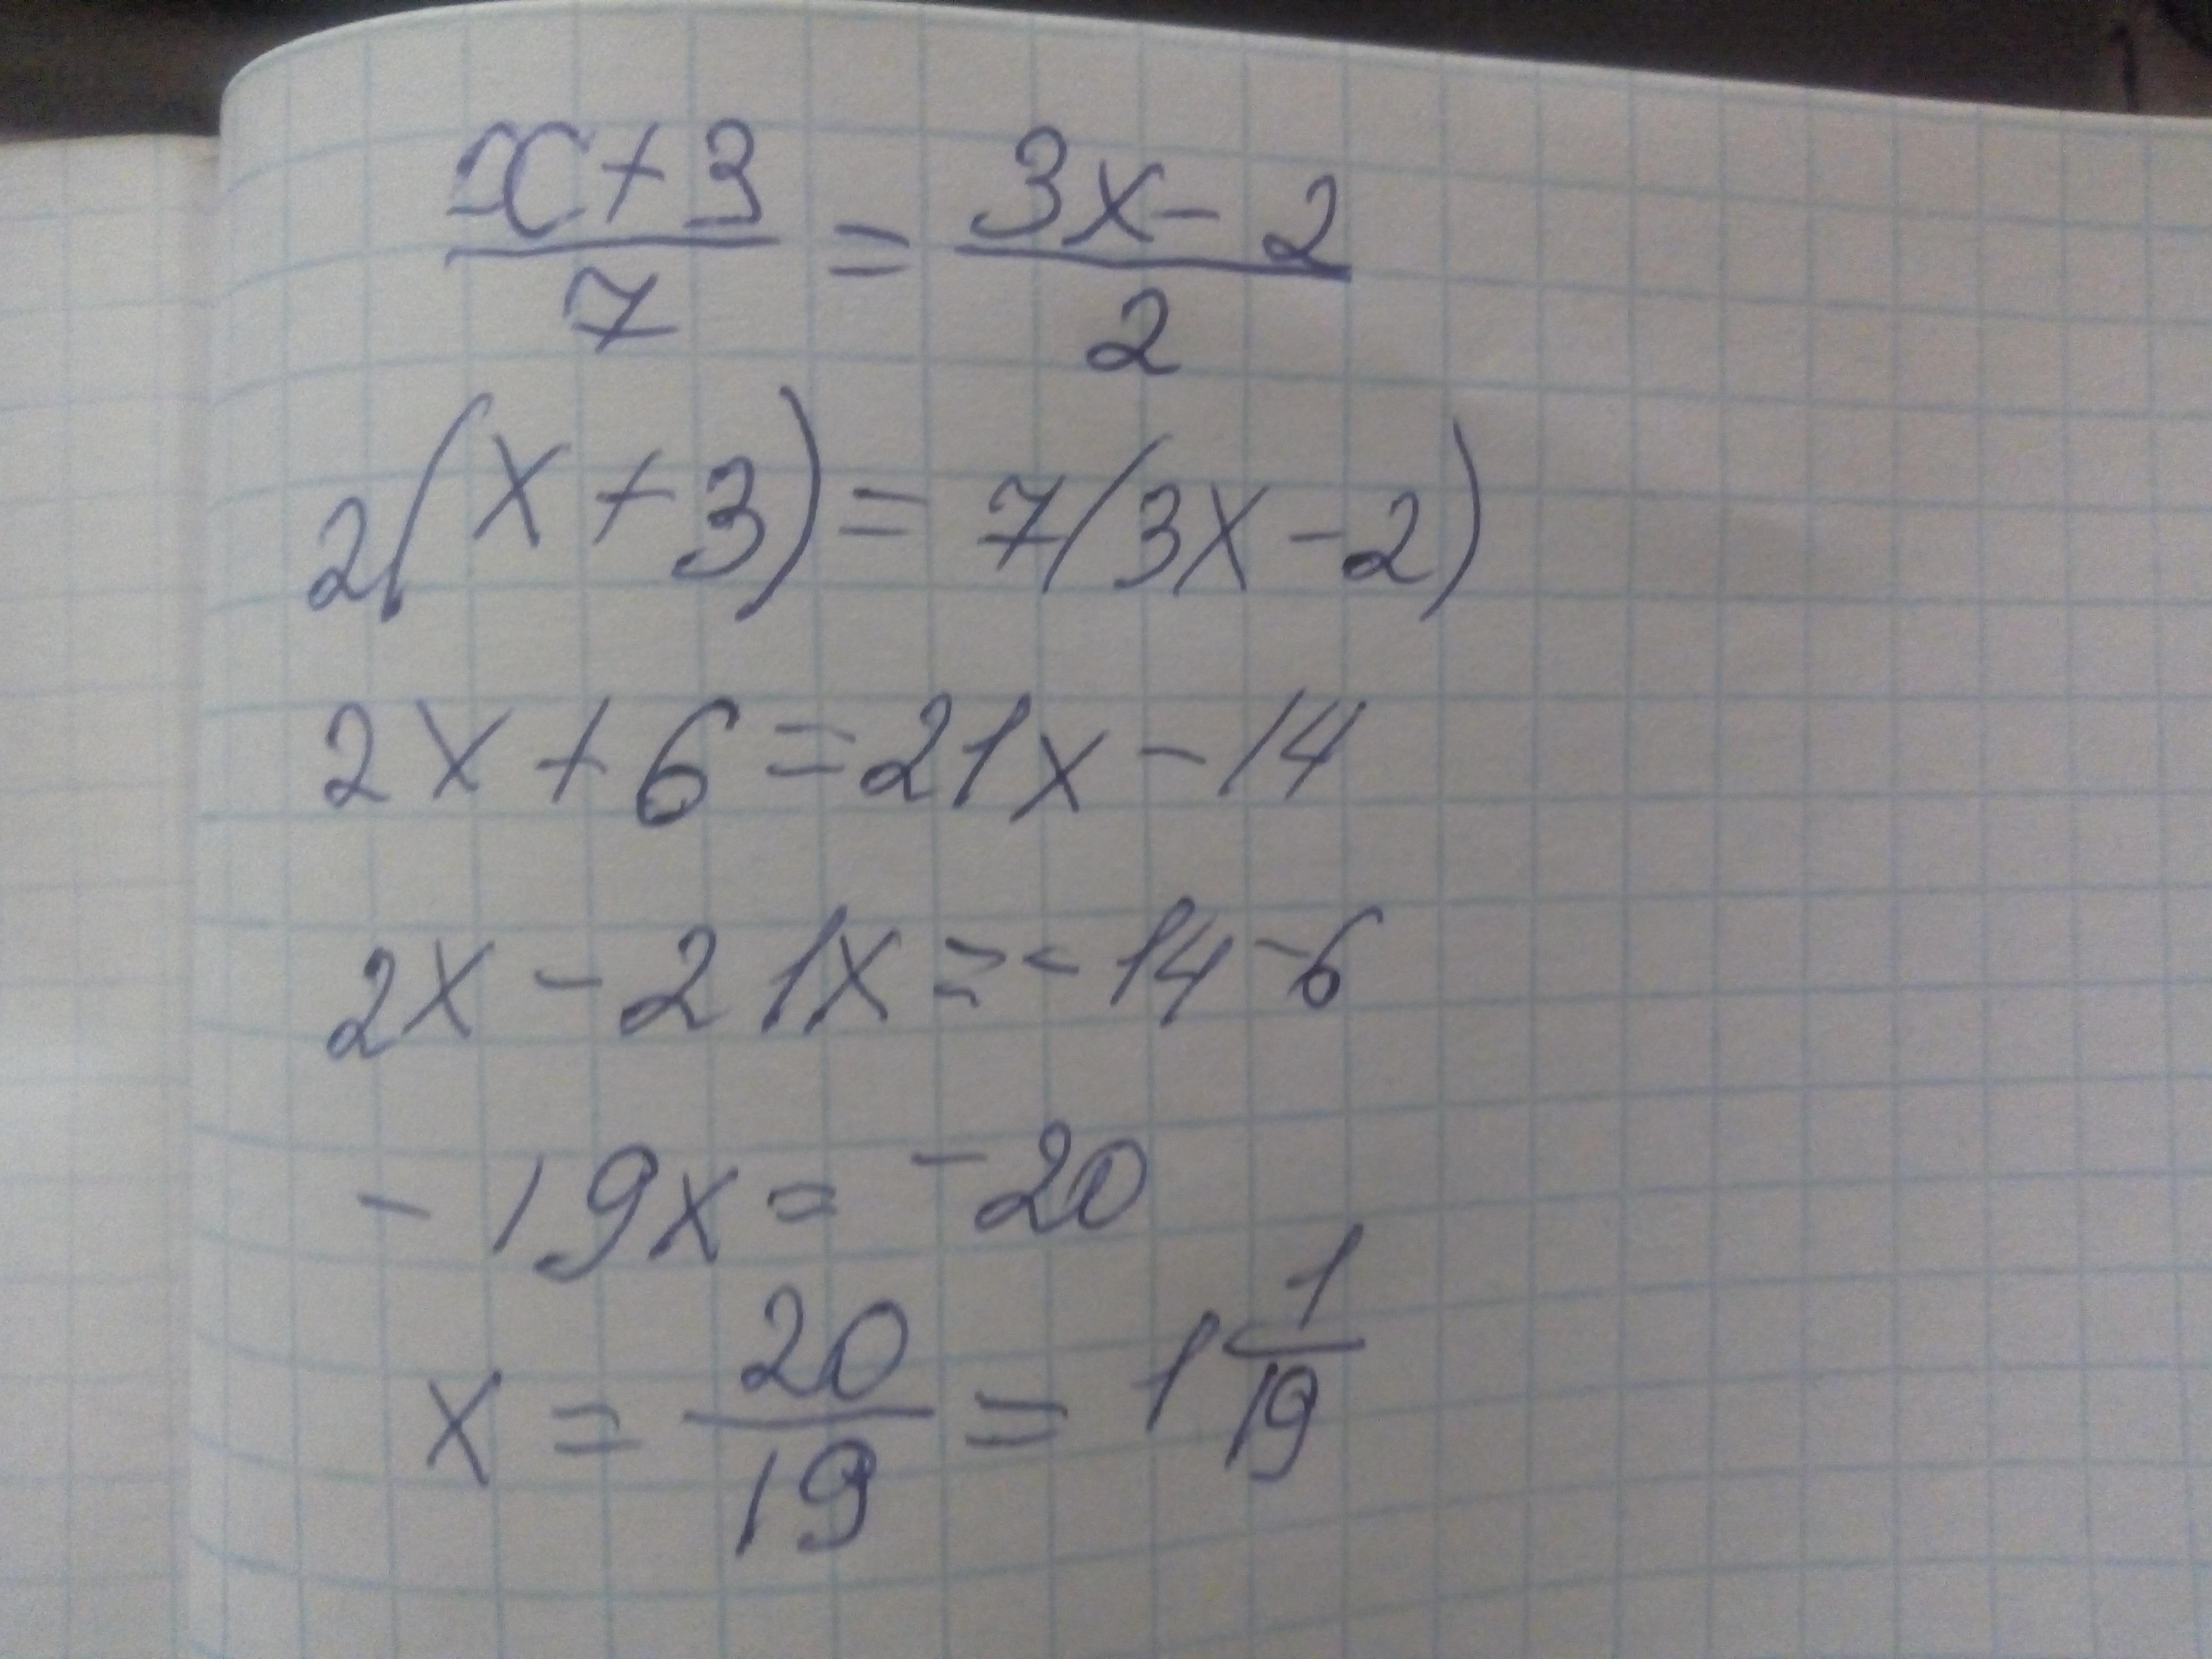 x+3/7 = 3x-2/2
2(x+3)=7(3x-2)
2x+6=21x-14
2x-21x=-14-6
-19x=-20
x=20/19=1 1/19